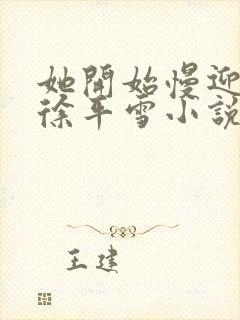 她開始慢迎
徐平雪小說
王建